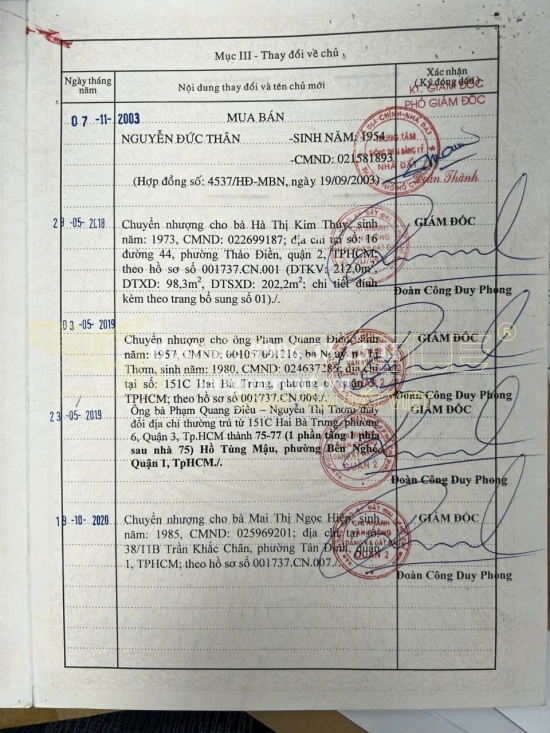 Mục III - Thay đổi về chủ
Ngày tháng năm
Nội dung thay đổi và tên chủ mới
Xác nhận
(Ký đóng dấu)
KT. GIÁM ĐỐC
PHÓ GIÁM ĐỐC
07-11-2003
MUA BÁN
NGUYỄN ĐỨC THÂN -SINH NĂM: 1954
-CMND: 021581893
(Hợp đồng số: 4537/HĐ-MBN, ngày 19/09/2003)
TRUNG TÂM
NHÀ ĐẤT
Thành
29-05-2018
Chuyển nhượng cho bà Hà Thị Kim Thúy, sinh
năm: 1973, CMND: 022699187; địa chỉ tại số: 16
đường 44, phường Thảo Điền, quận 2, TPHCM;
theo hồ sơ số 001737.CN.001 (DTKV: 212,0m²,
DTXD: 98,3m², DTSXD: 202,2m²; chi tiết đính
kèm theo trang bổ sung số 01)./.
GIÁM ĐỐC
Đoàn Công Duy Phong
03-05-2019
Chuyển nhượng cho ông Phạm Quang Điều, sinh
năm: 1957, CMND: 001057001216; bà Nguyễn Thị
Thơm, sinh năm: 1980, CMND: 024637285; địa chỉ
tại số: 151C Hai Bà Trưng, phường 6, quận 3,
TPHCM; theo hồ sơ số 001737.CN.004./.
GIÁM ĐỐC
Đoàn Công Duy Phong
23-05-2019
Ông bà Phạm Quang Điều – Nguyễn Thị Thơm thay
đổi địa chỉ thường trú từ 151C Hai Bà Trưng, phường
6, Quận 3, Tp.HCM thành 75-77 (1 phần tầng 1 phía
sau nhà 75) Hồ Tùng Mậu, phường Bến Nghé,
Quận 1, TpHCM./.
GIÁM ĐỐC
QUẬN 2
Đoàn Công Duy Phong
19-10-2020
Chuyển nhượng cho bà Mai Thị Ngọc Hiệp, sinh
năm: 1985, CMND: 025969201; địa chỉ tại số
38/11B Trần Khắc Chân, phường Tân Định, quận
1, TPHCM; theo hồ sơ số 001737.CN.007./.
GIÁM ĐỐC
CHI NHÁNH
VĂN PHÒNG
ĐĂNG KÝ ĐẤT ĐAI
QUẬN 2
Đoàn Công Duy Phong